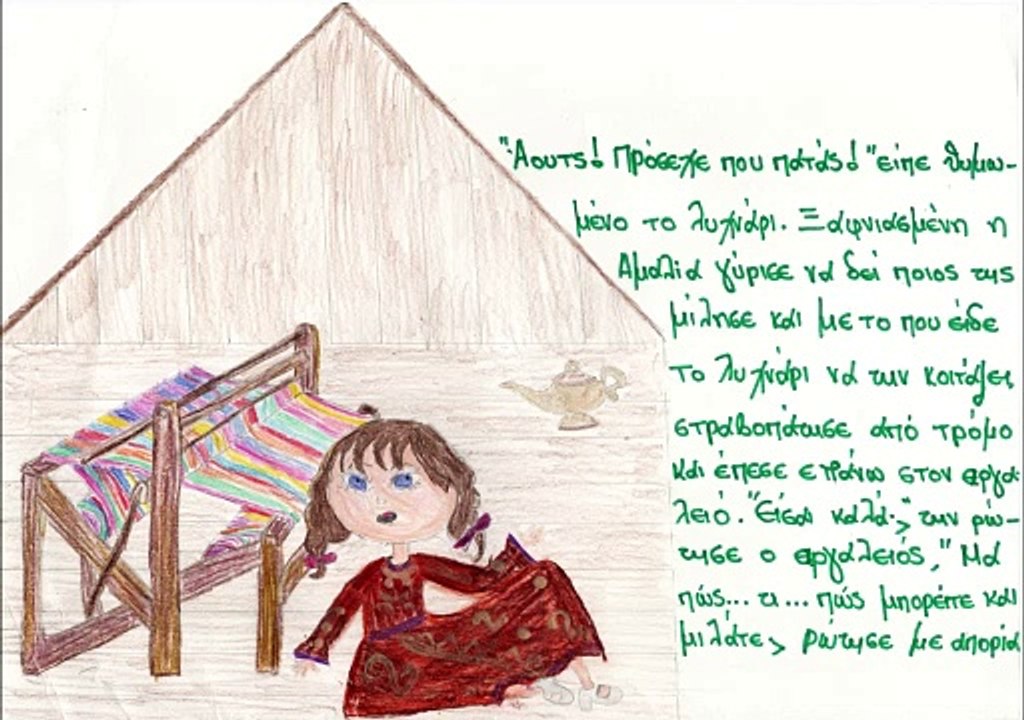 "Άουτς! Πρόσεχε που πατάς!" είπε θυμω-
μένο το λυχνάρι. Ξαφνιασμένη η
Αμαλία γύρισε να δει ποιος της
μίλησε και με το που είδε
το λυχνάρι να την κοιτάζει,
στραβοπάτησε από τρόμο
και έπεσε επάνω στον αργα-
λειό. "Είσαι καλά;" την ρώ-
τησε ο αργαλειός, "Μα
πώς... τι... πώς μπορείτε και
μιλάτε; ρώτησε με απορία